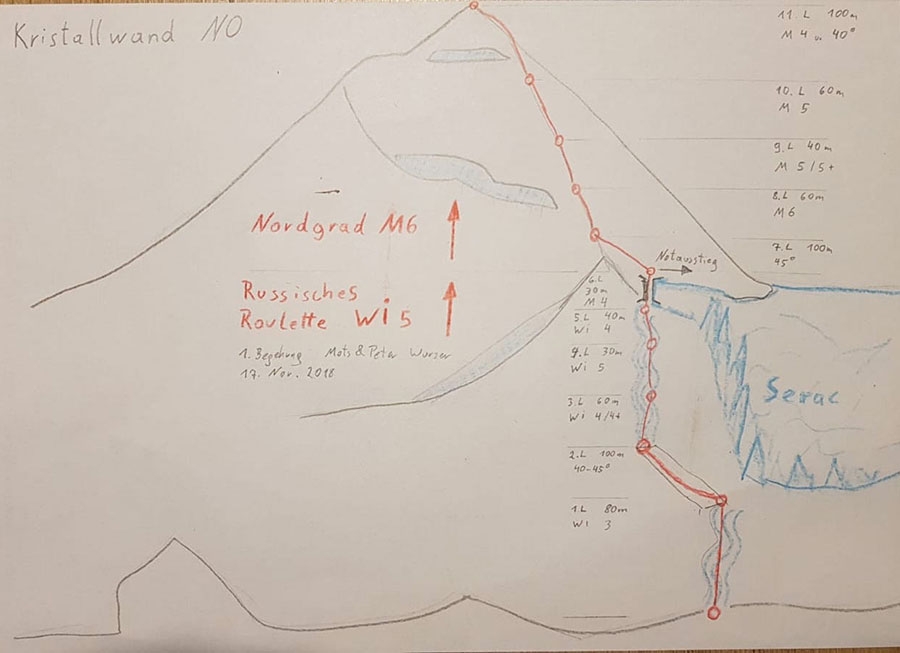 Kristallwand NO
11. L 100m
M 4 u. 40°
10. L 60m
M 5
9. L 40m
M 5/5+
8. L 60m
M6
7. L 100m
45°
Notausstieg
Nordgrad M6
Russisches
Roulette Wi 5
1. Begehung Mots & Peter Wurzer
17. Nov. 2018
6. L
30m
M 4
5. L 40m
Wi 4
4. L 30m
Wi 5
3. L 60m
Wi 4/4+
2. L 100m
40-45°
1. L 80m
Wi 3
Serac